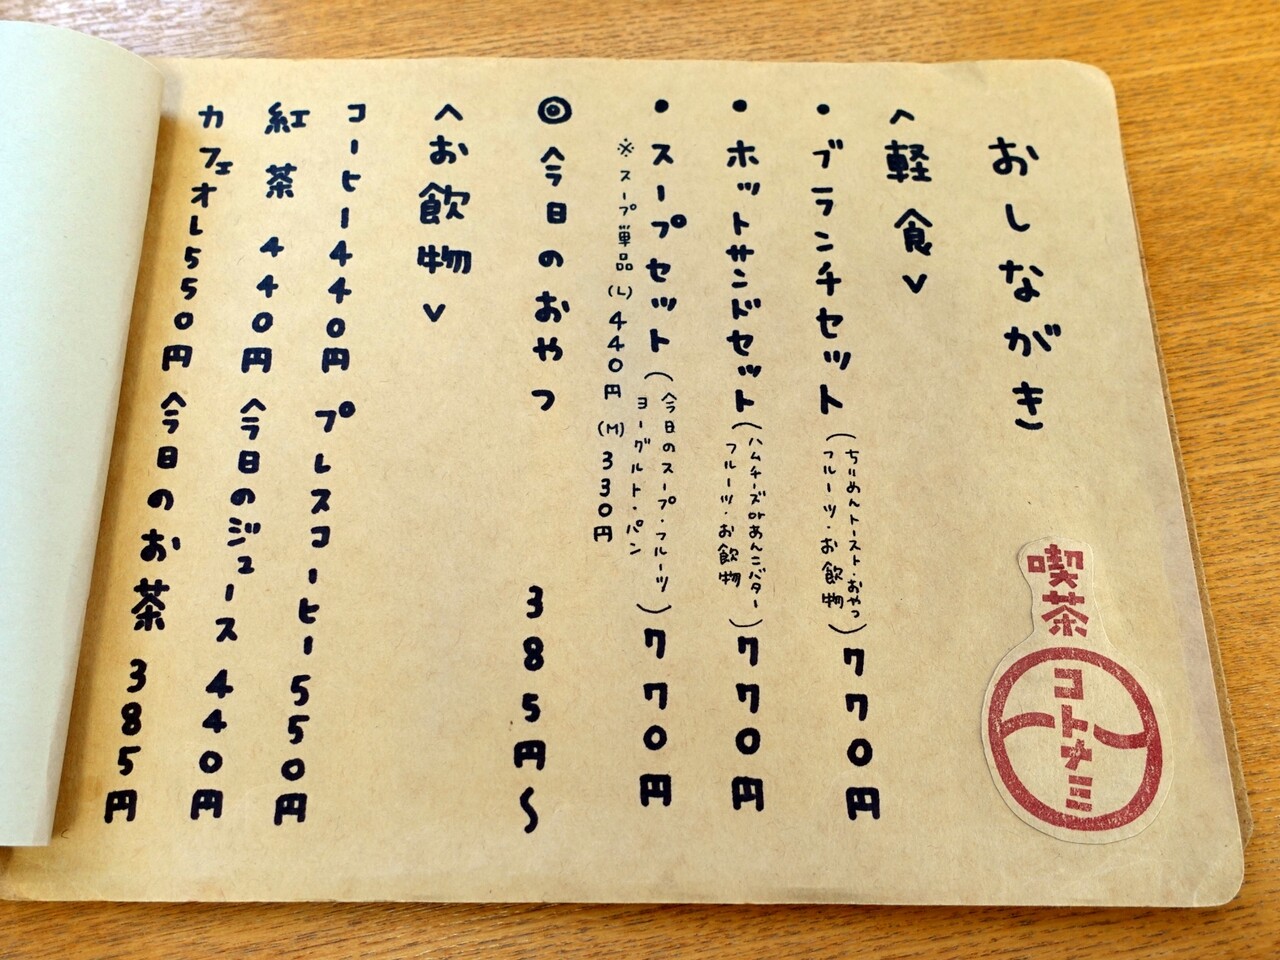 おしながき
喫茶
コトナミ
〈軽食〉
・ブランチセット(ちりめんトースト・おやつ
フルーツ・お飲物)770円
・ホットサンドセット(ハムチーズorあんこバター
フルーツ・お飲物)770円
・スープセット(今日のスープ・フルーツ
ヨーグルト・パン)770円
※スープ単品(L)440円(M)330円
◎今日のおやつ 385円〜
〈お飲物〉
コーヒー440円 プレスコーヒー550円
紅茶 440円 今日のジュース 440円
カフェオレ550円 今日のお茶 385円